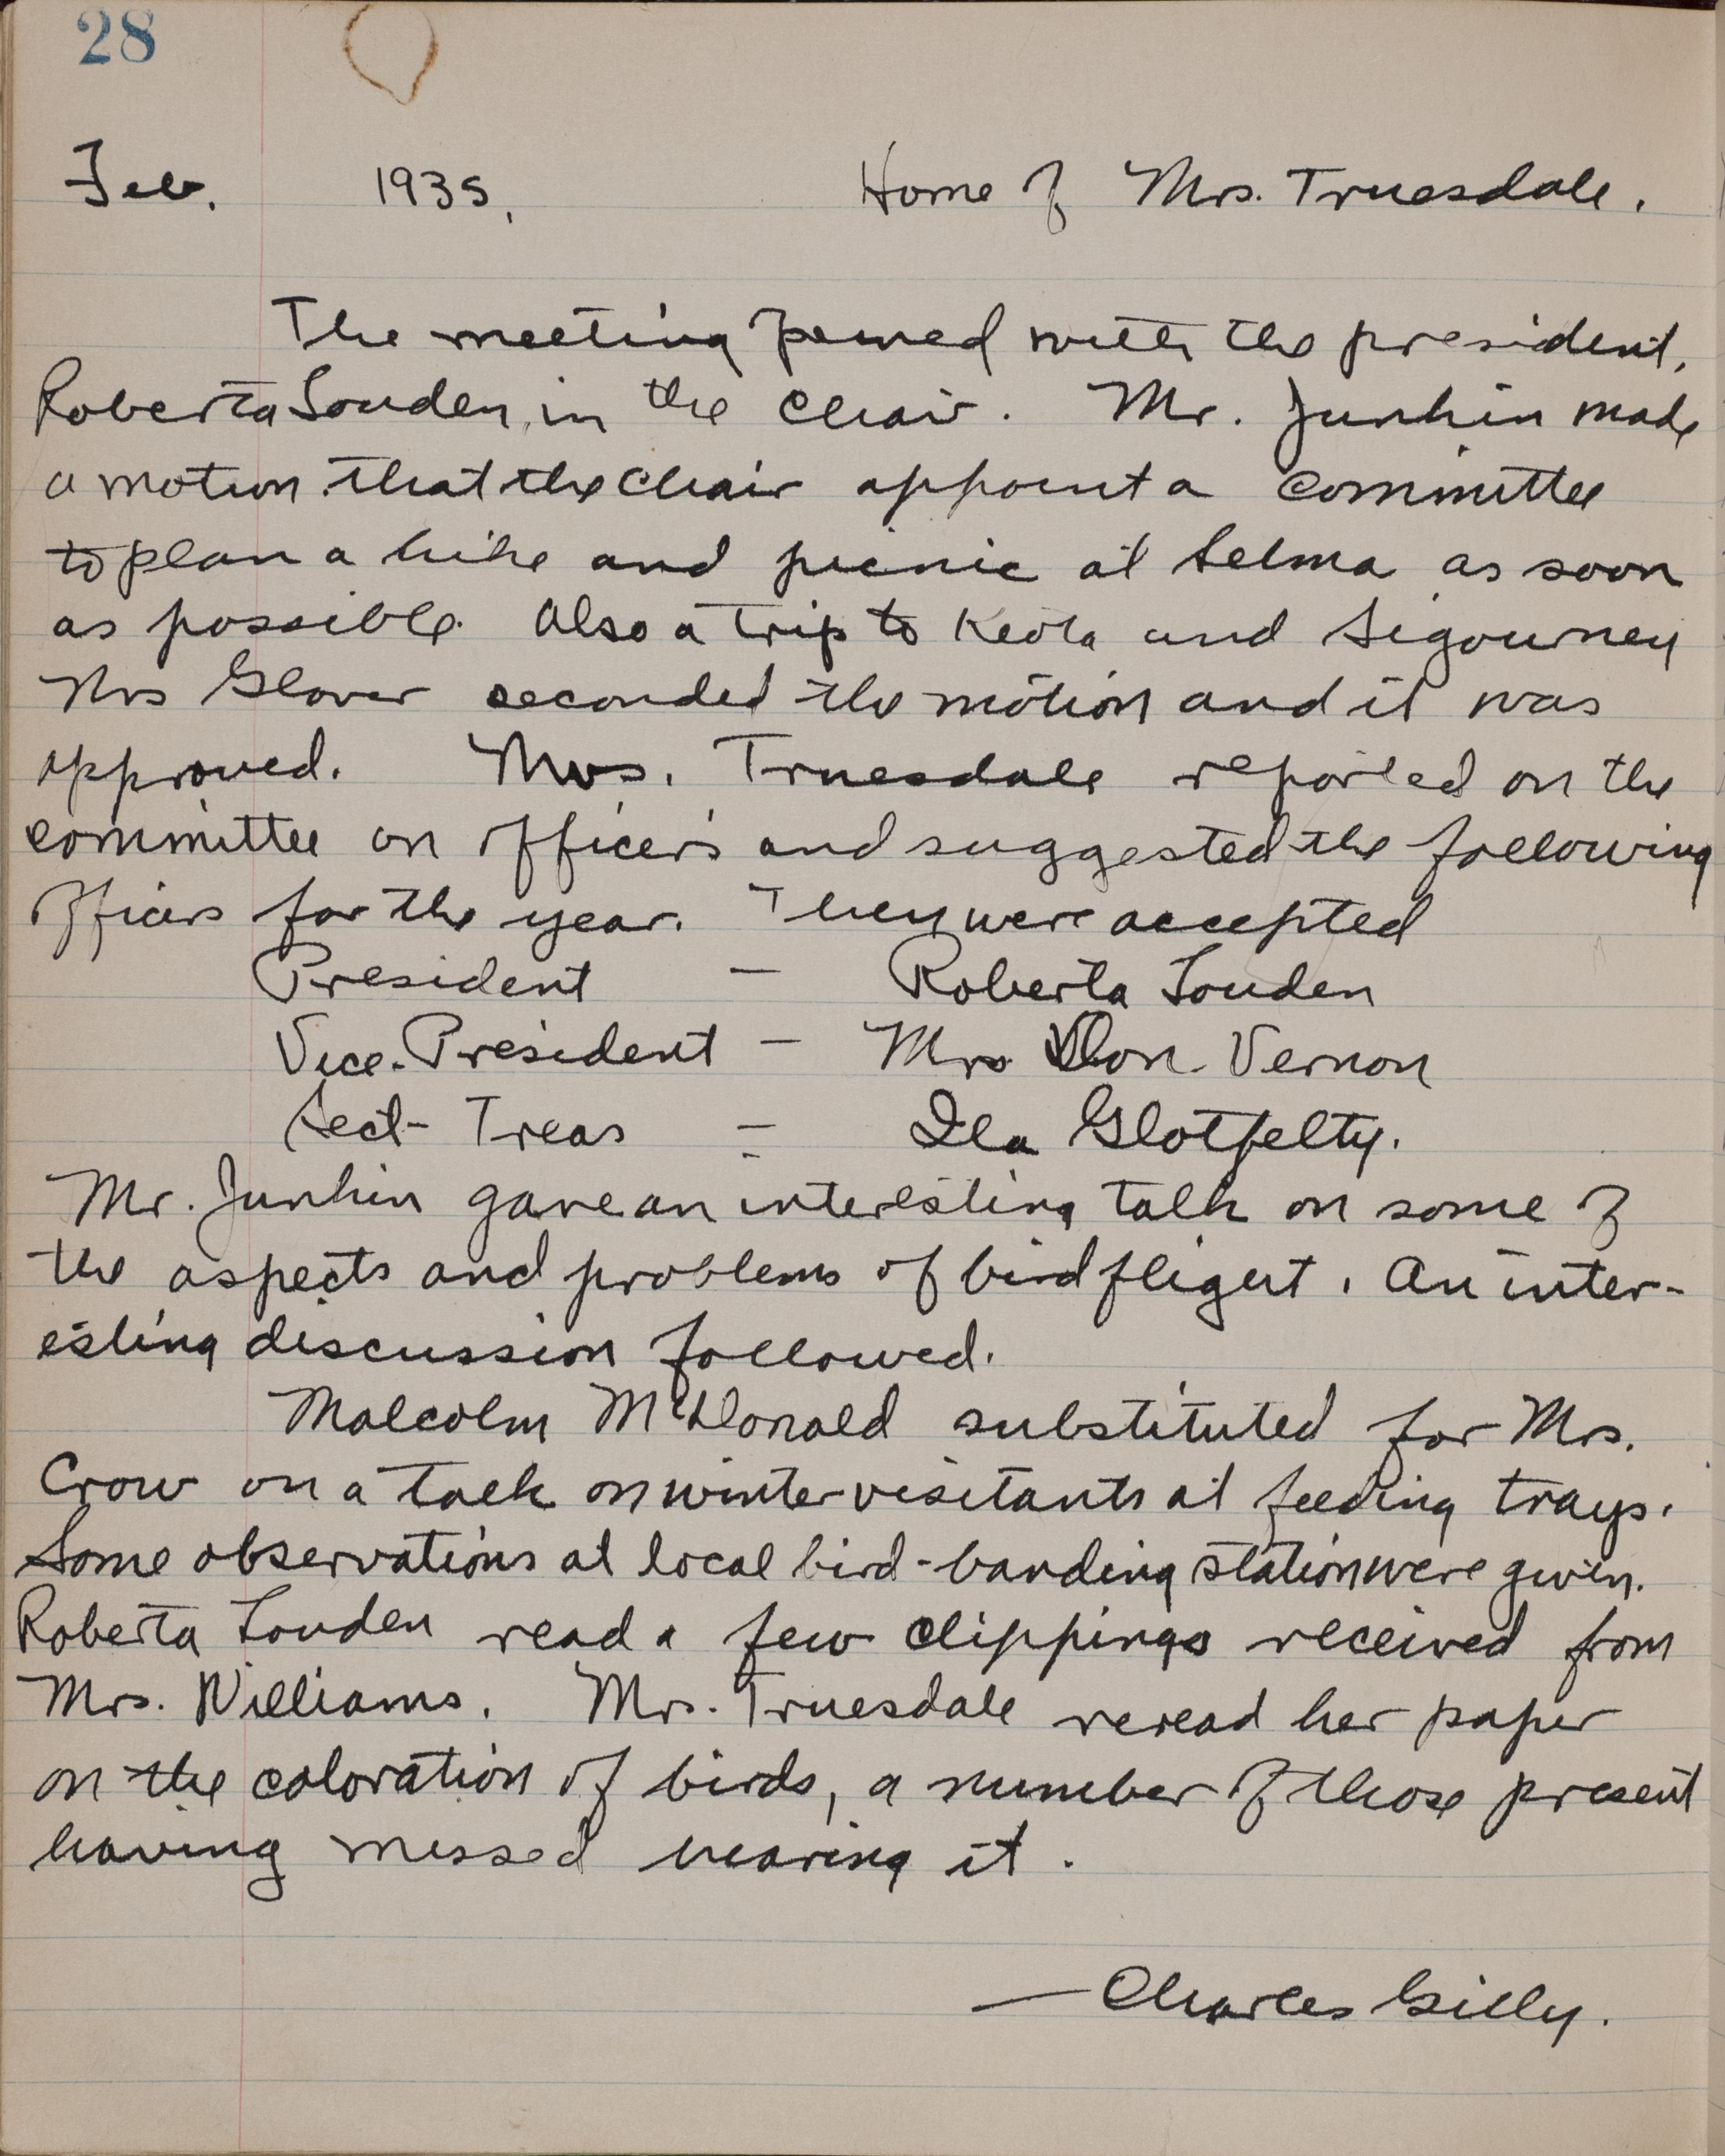 28
Feb. 1935. Home of Mrs. Truesdale.
The meeting opened with the president,
Roberta Louden, in the chair. Mr. Junkin made
a motion that the chair appoint a committee
to plan a hike and picnic at Selma as soon
as possible. Also a trip to Keota and Sigourney
Mrs Glover seconded the motion and it was
approved. Mrs. Truesdale reported on the
committee on officers and suggested the following
officers for the year. They were accepted
President - Roberta Louden
Vice-President - Mrs Don Vernon
Sect- Treas - Ila Glotfelty.
Mr. Junkin gave an interesting talk on some of
the aspects and problems of bird flight. An inter-
esting discussion followed.
Malcolm McDonald substituted for Mrs.
Crow on a talk on winter visitants at feeding trays.
Some observations at local bird-banding station were given.
Roberta Louden read a few clippings received from
Mrs. Williams. Mrs. Truesdale reread her paper
on the coloration of birds, a number of those present
having missed hearing it.
— Charles Gilly.